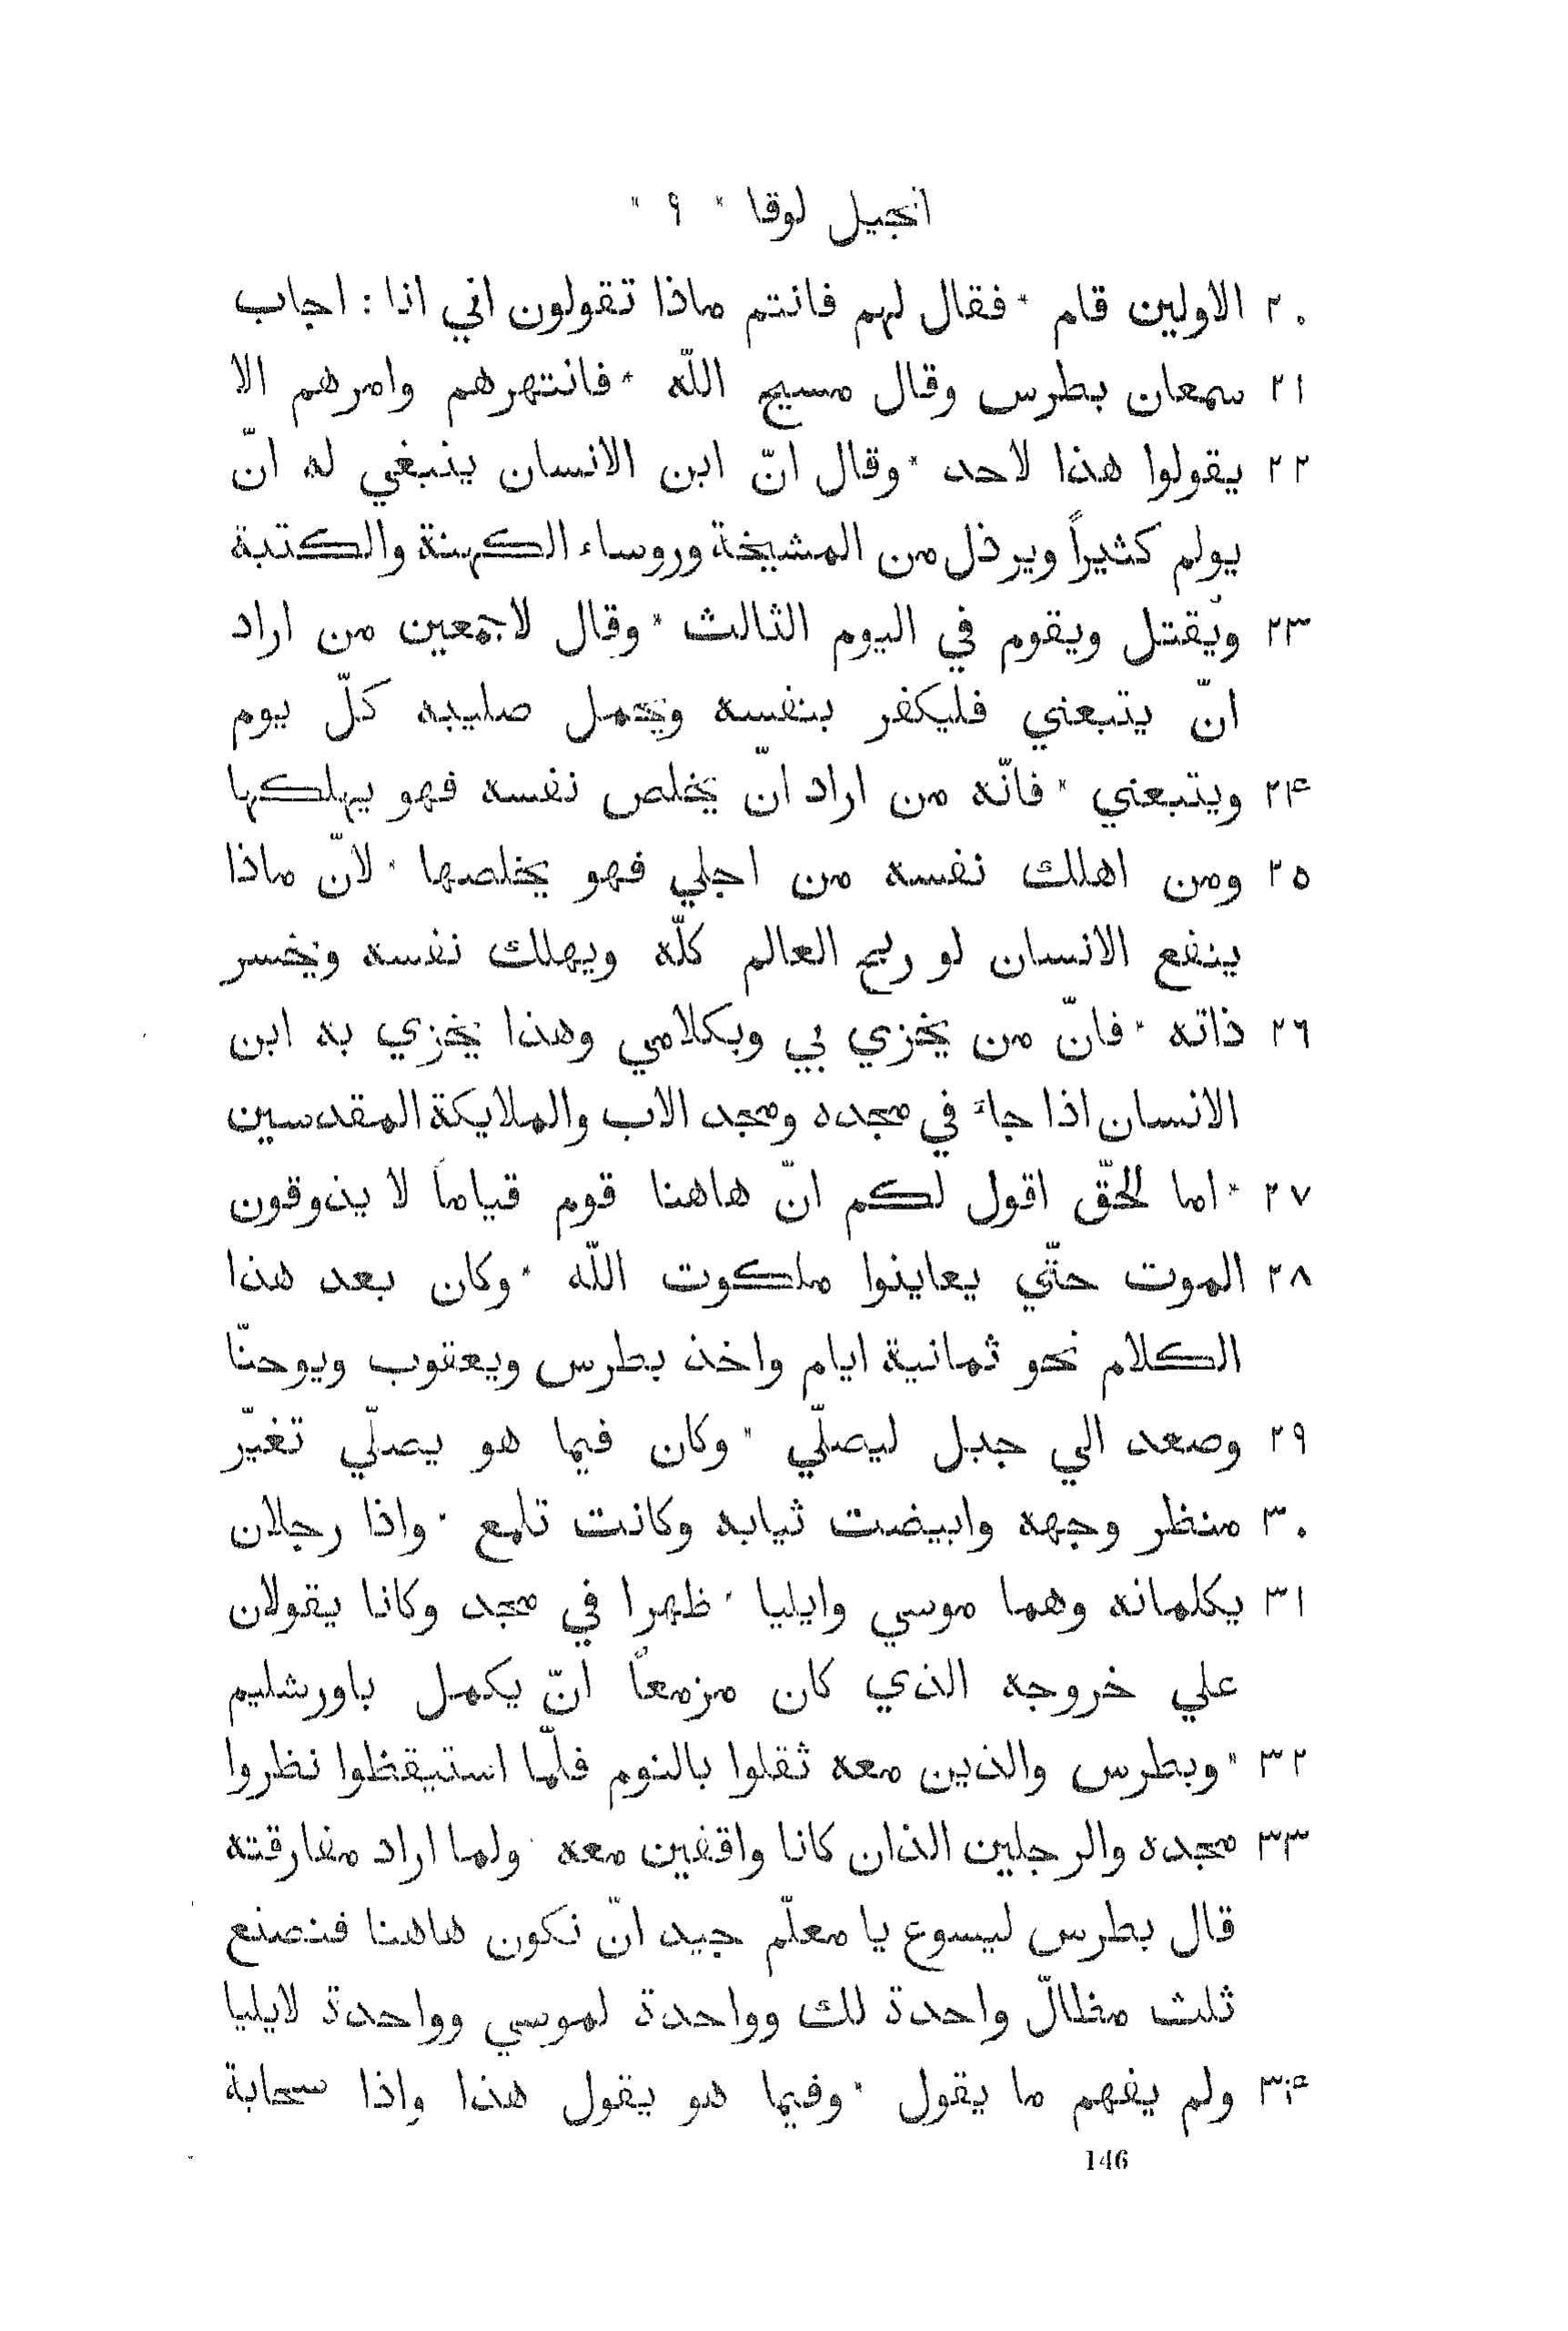 انجيل لوقا * ٩ *
٢٠ الاولين قام * فقال لهم فانتم ماذا تقولون اني انا : اجاب
٢١ سمعان بطرس وقال مسيح اللّه * فانتهرهم وامرهم الا
٢٢ يقولوا هذا لاحد * وقال انّ ابن الانسان ينبغي له انّ
يولم كثيراً ويرذل من المشيخة وروساء الكهنة والكتبة
٢٣ ويُقتل ويقوم في اليوم الثالث * وقال لاجمعين من اراد
انّ يتبعني فليكفر بنفسه ويحمل صليبه كلّ يوم
٢۴ ويتبعني * فانّه من اراد انّ يخلص نفسه فهو يهلكها
٢٥ ومن اهلك نفسه من اجلي فهو يخلصها * لانّ ماذا
ينفع الانسان لو ربح العالم كلّه ويهلك نفسه ويخسر
٢٦ ذاته * فانّ من يخزي بي وبكلامي وهذا يخزي به ابن
الانسان اذا جاءَ في مجده ومجد الاب والملايكة المقدسين
٢٧ * اما لحقّ اقول لكم انّ هاهنا قوم قياماً لا يذوقون
٢٨ الموت حتّي يعاينوا ملكوت اللّه * وكان بعد هذا
الكلام نحو ثمانية ايام واخذ بطرس ويعقوب ويوحنّا
٢٩ وصعد الي جبل ليصلّي * وكان فيما هو يصلّي تغيّر
٣٠ منظر وجهه وابيضت ثيابه وكانت تلمع * واذا رجلان
٣١ يكلمانه وهما موسي وايليا * ظهرا في مجد وكانا يقولان
علي خروجه الذي كان مزمعاً انّ يكمل باورشليم
٣٢ * وبطرس والذين معه ثقلوا بالنوم فلّما استيقظوا نظروا
٣٣ مجده والرجلين الذان كانا واقفين معه * ولما اراد مفارقته
قال بطرس ليسوع يا معلّم جيد انّ نكون هاهنا فنصنع
ثلث مظالّ واحدة لك وواحدة لموسي وواحدة لايليا
٣۴ ولم يفهم ما يقول * وفيما هو يقول هذا واذا سحابة
146